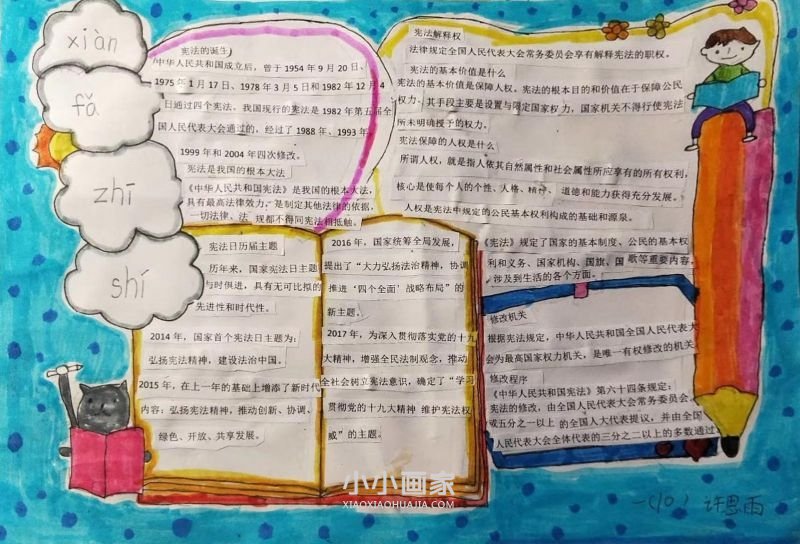 xiàn
fǎ
zhī
shí
宪法的诞生
中华人民共和国成立后，曾于 1954 年 9 月 20 日、
1975 年 1 月 17 日、1978 年 3 月 5 日和 1982 年 12 月 4
日通过四个宪法，我国现行的宪法是 1982 年第五届全
国人民代表大会通过的，经过了 1988 年、1993 年、
1999 年和 2004 年四次修改。
宪法是我国的根本大法
《中华人民共和国宪法》是我国的根本大法，
具有最高法律效力，是制定其他法律的依据，
一切法律、法 规都不得同宪法相抵触。
宪法解释权
法律规定全国人民代表大会常务委员会享有解释宪法的职权。
宪法的基本价值是什么
宪法的基本价值是保障人权。宪法的根本目的和价值在于保障公民
权力，其手段主要是设置与限定国家权力，国家机关不得行使宪法
所未明确授予的权力。
宪法保障的人权是什么
所谓人权，就是指人依其自然属性和社会属性所应享有的所有权利，
核心是使每个人的个性、人格、精神、道德和能力获得充分发展。
人权是宪法中规定的公民基本权利构成的基础和源泉。
《宪法》规定了国家的基本制度、公民的基本权
利和义务、国家机构、国旗、国歌等重要内容，
涉及到生活的各个方面。
宪法日历届主题
历年来，国家宪法日主题
与时俱进，具有无可比拟的
先进性和时代性。
2014 年，国家首个宪法日主题为：
弘扬宪法精神，建设法治中国。
2015 年，在上一年的基础上增添了新时代
内容：弘扬宪法精神，推动创新、协调、
绿色、开放、共享发展。
2016 年，国家统筹全局发展，
提出了“大力弘扬法治精神，协调
推进‘四个全面’战略布局”的
新主题。
2017 年，为深入贯彻落实党的十九
大精神，增强全民法制观念，推动
全社会树立宪法意识，确定了“学习
贯彻党的十九大精神 维护宪法权
威”的主题。
修改机关
根据宪法规定，中华人民共和国全国人民代表大
会为最高国家权力机关，是唯一有权修改的机关
修改程序
《中华人民共和国宪法》第六十四条规定：
宪法的修改，由全国人民代表大会常务委员会
或五分之一以上的全国人大代表提议，并由全国
人民代表大会全体代表的三分之二以上的多数通过
小小画家
XIAOXIAOHUAJIA.COM
一(10) 许思雨